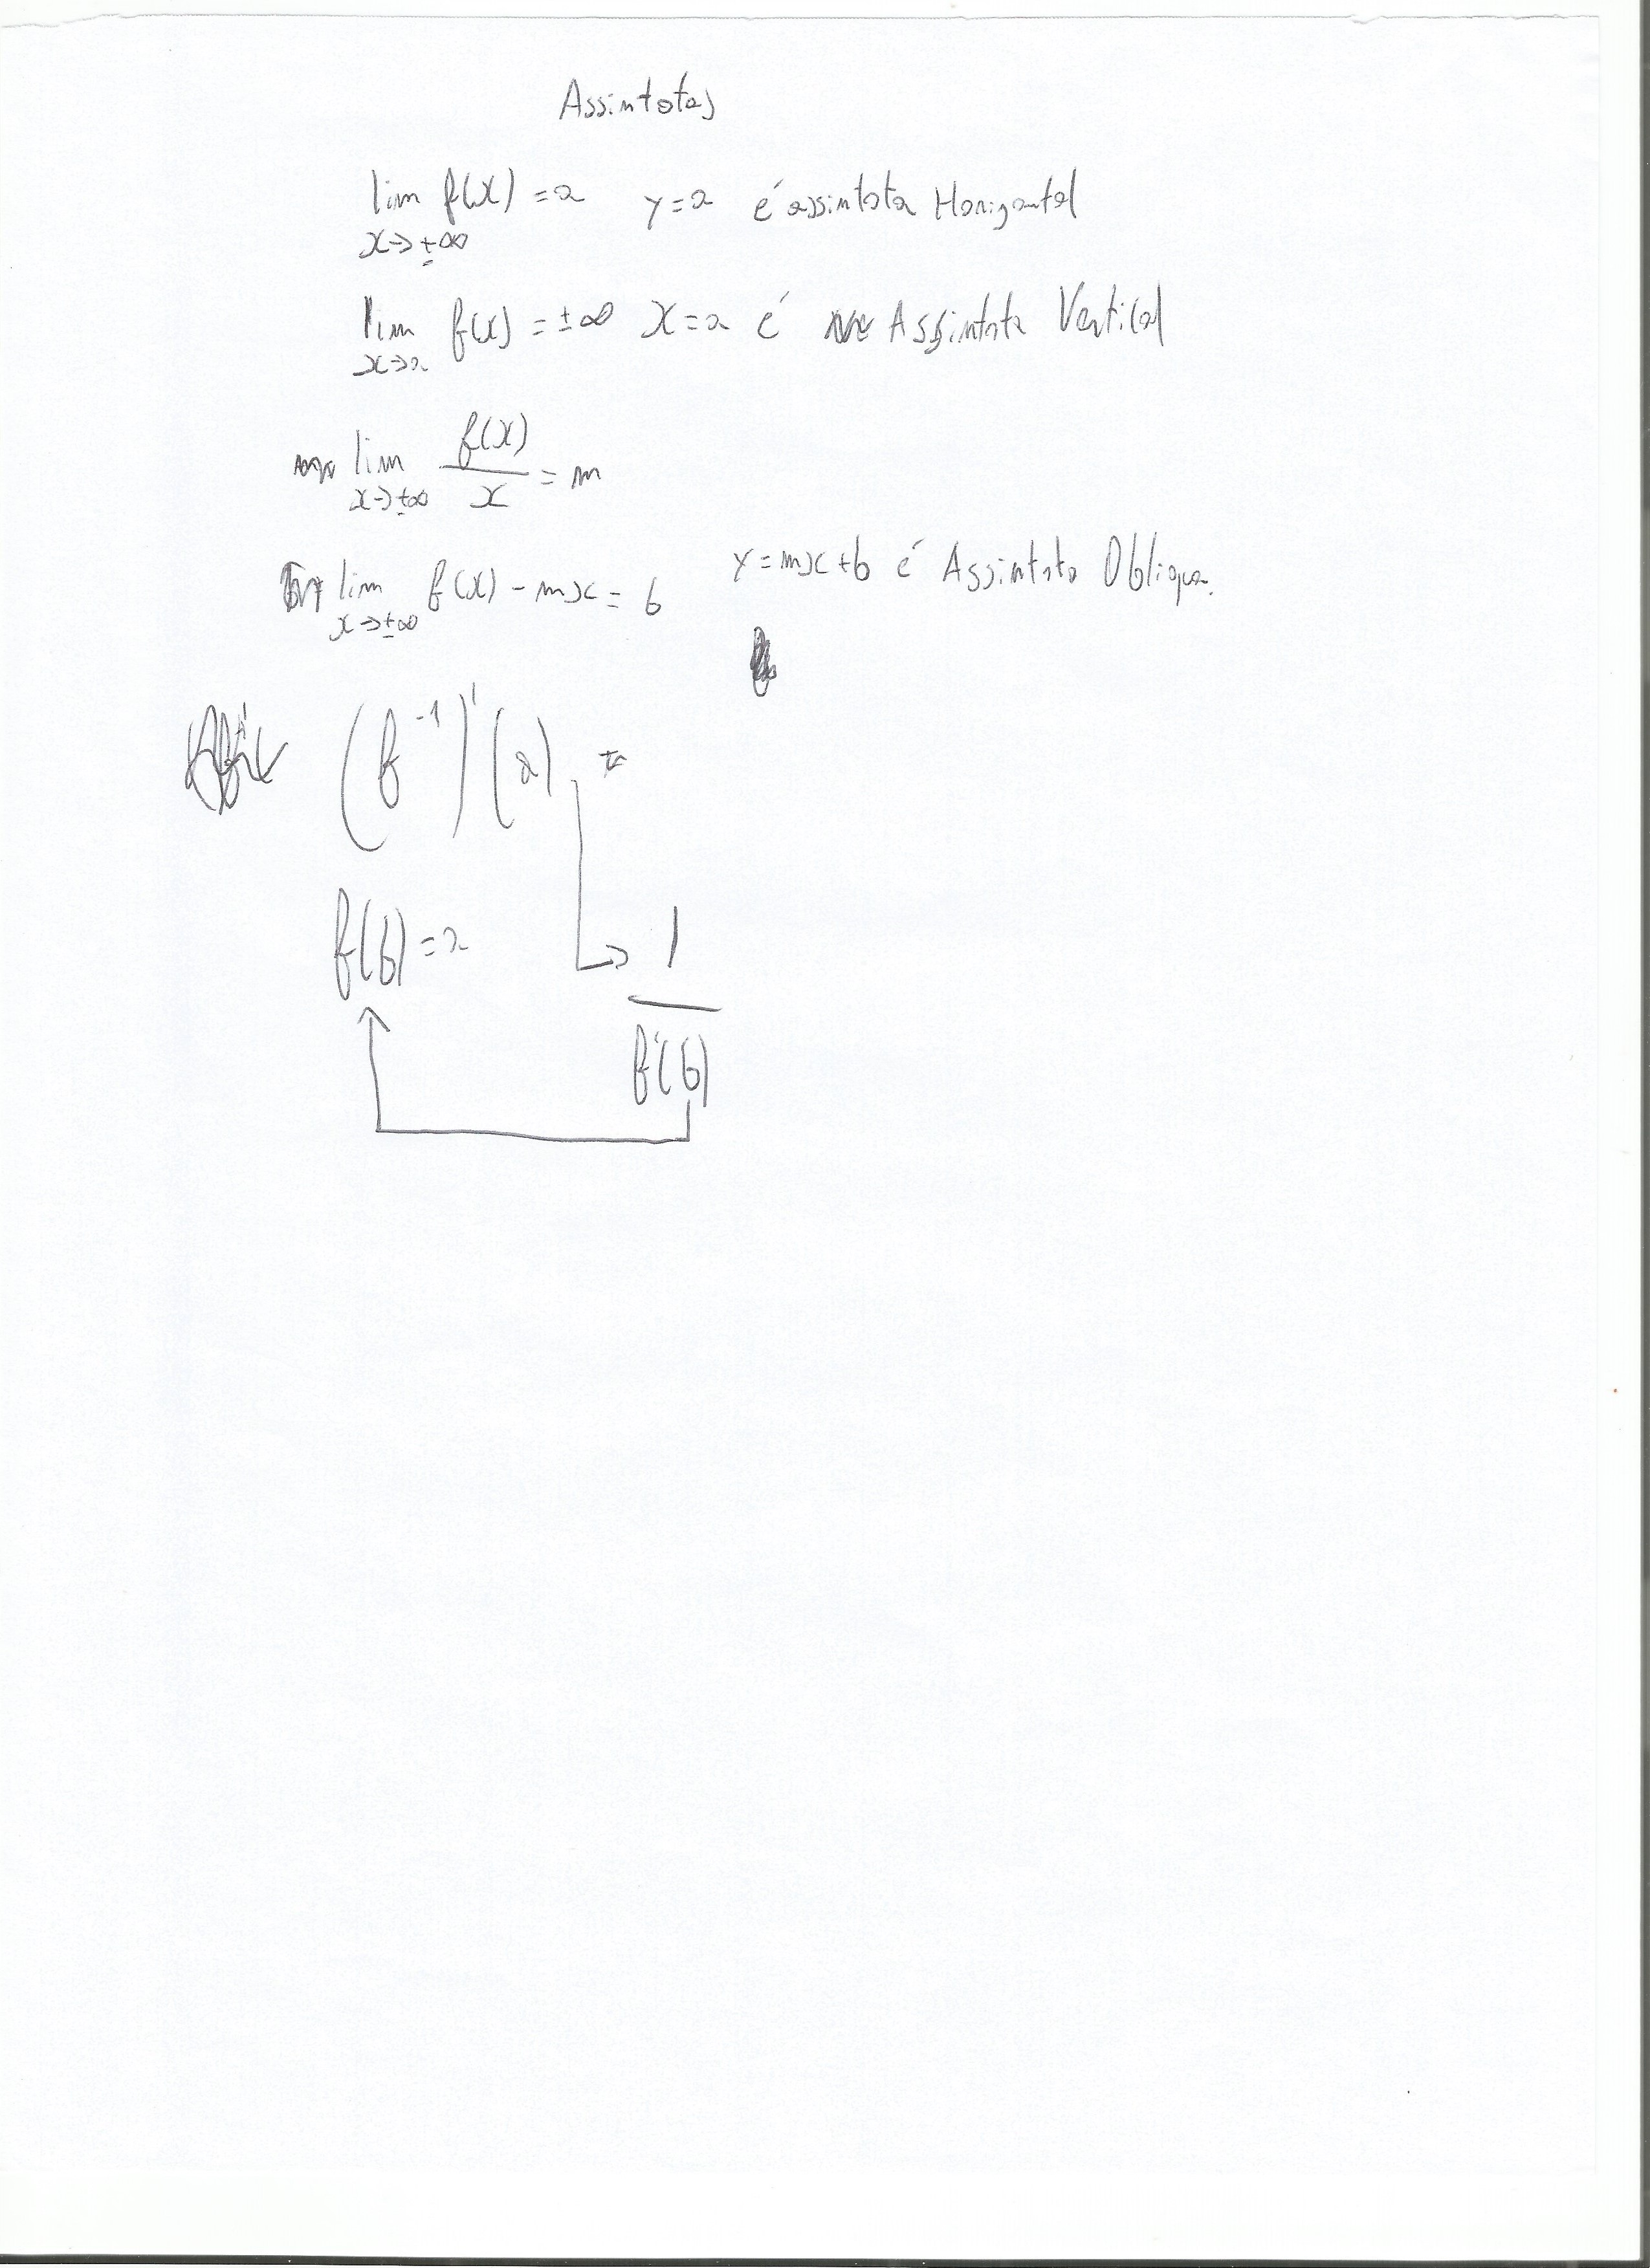 Assintotas
lim f(x) = a y = a é assintota Horizontal
x→±∞
lim f(x) = ±∞ x = a é Assintota Vertical
x→a
lim f(x)/x = m
x→±∞
lim f(x) - mx = b y = mx + b é Assintota Obliqua.
x→±∞
(f⁻¹)'(a) =
f(b) = a → 1
f'(b)